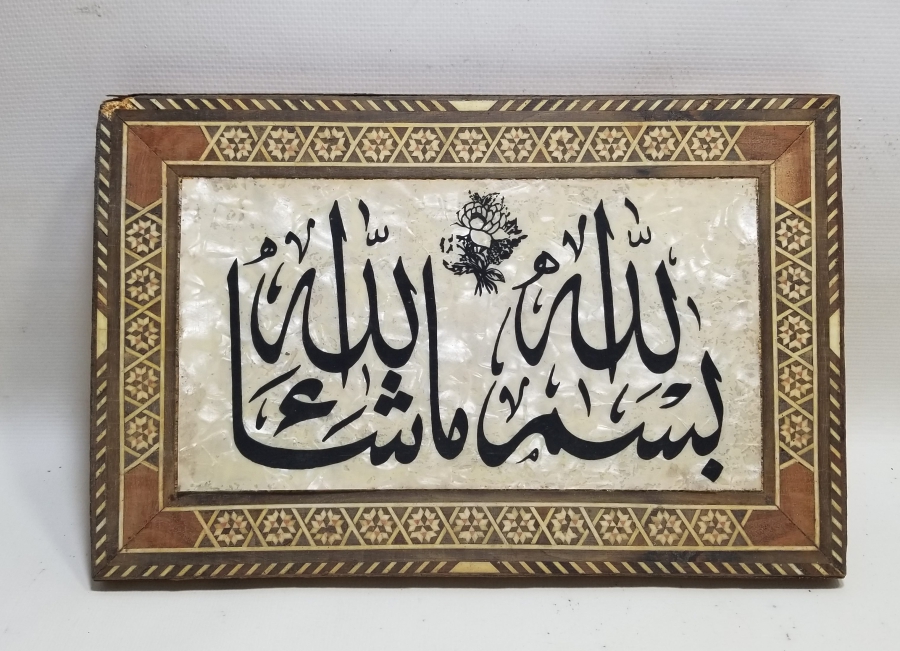 بسم الله ما شاء الله